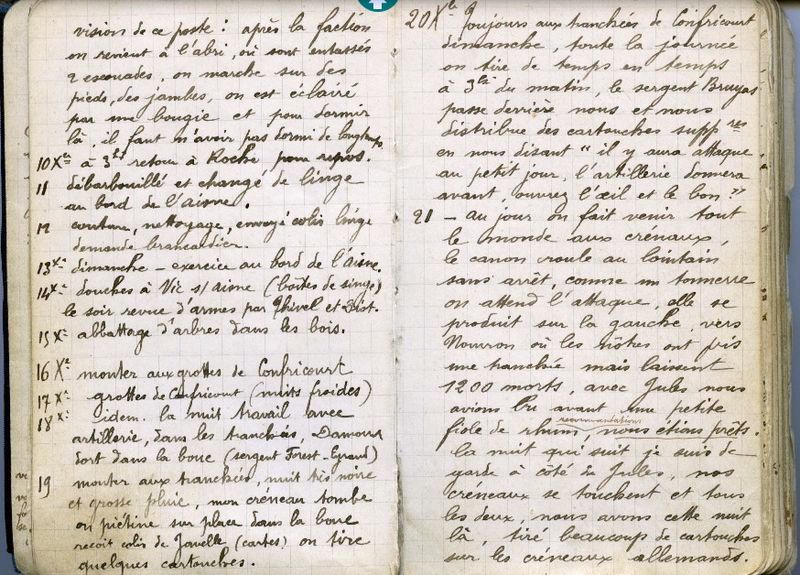 vision de ce poste : après la faction
on revient à l'abri, où sont entassés
2 escouades, on marche sur des
pieds, des jambes, on est éclairé
par une bougie et pour dormir
là, il faut n'avoir pas dormi de longtemps.
10 Xre à 3h retour à Roche pour repos.
11 débarbouillé et changé de linge
au bord de l'aisne.
12 couture, nettoyage, envoyé colis linge
demande brancardier.
13 Xre dimanche - exercice au bord de l'aisne.
14 Xre douches à Vic s/ aisne (boîtes de singe)
le soir revue d'armes par et
15 Xre abbattage d'arbres dans les bois.
16 Xre monter aux grottes de Confricourt
17 Xre grottes de Confricourt (nuits froides)
18 Xre idem. la nuit travail avec
artillerie, dans les tranchées, Damour
dort dans la boue (sergent Forest-Eyraud)
19 monter aux tranchées, nuit très noire
et grosse pluie, mon créneau tombe
on piétine sur place dans la boue
reçoit colis de Javelle (cartes) on tire
quelques cartouches.
20 Xre Toujours aux tranchées de Confricourt
dimanche, toute la journée
on tire de temps en temps
à 3h du matin, le sergent Bruyas
passe derrière nous et nous
distribue des cartouches suppres
en nous disant " il y aura attaque
au petit jour, l'artillerie donnera
avant, ouvrez l'œil et le bon "
21 - au jour on fait venir tout
le monde aux crénaux,
le canon roule au lointain
sans arrêt, comme un tonnerre
on attend l'attaque, elle se
produit sur la gauche, vers
Nouvron où les nôtres ont pris
une tranchée mais laissent
1200 morts, avec Jules nous
avions bu avant une petite
fiole de rhum, recommandation nous étions prêts.
la nuit qui suit je suis de
garde à côté de Jules, nos
créneaux se touchent et tous
les deux, nous avons cette nuit
là, tiré beaucoup de cartouches
sur les créneaux allemands.